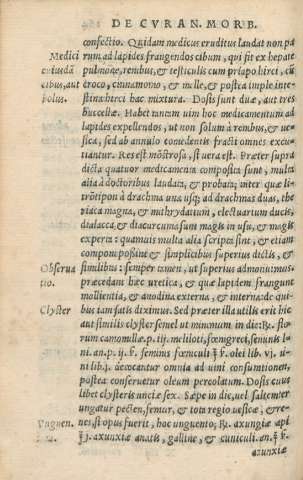 DE CVRAN. MORB.
confectio. Quidam medicus eruditus laudat non pa
Medici
rum ad lapides frangendos cibum, qui fit ex hepate
cuiusdã
pulmõe, renibus, & testiculis cum priapo hirci, cũ
cibus, aut
croco, cinnamomo, & melle, & postea imple inte-
bolus.
stina hirci hac mixtura. Dosis sunt duæ, aut tres
buccellæ. Habet tamen uim hoc medicamentum ad
lapides expellendos, ut non solum à renibus, & ue-
sica, sed ab annulo comedentis fractt omnes excu-
tiantur. Res est mõstrosa, si uera est. Præter supra
dicta quatuor medicamenta composita sunt, multa
alia à doctoribus laudata, & probata; inter quæ li-
trõtipon à drachma una usq; ad drachmas duas, the
riaca magna, & mithrydatum, electuarium ducis,
dialacca, & diacurcuma sunt magis in usu, & magis
experta: quamuis multa alia scripta sint, & etiam
componi possint ex simplicibus superius dictis, &
Obserua
similibus: semper tamen, ut superius admonuimus,
tio.
præcedant hæc uretica, & quæ lapidem frangunt
mollientia, & anodina externa, & interna: de qui-
Clyster
bus iam satis diximus. Sed præter illa utilis erit hic
aut similis clyster semel ut minimum in die: ℞. flo-
rum camomillæ. p. tij. meliloti, fœnigreci, seminis li-
ni. an. p. ij. olei lib. vj. ui-
ni lib. j. decoctantur omnia ad uini consumtionem,
postea conseruetur oleum percolatum. Dosis cuius
libet clysteris unciæ sex. Sæpe in die, uel saltem ter
ungatur pecten, femur, & tota regio uesicæ, & re-
Vnguen.
nes, si opus fuerit, hoc unguento; ℞. axungiæ api
axunxiæ anatis, gallinæ, & cuniculi. an.
axunxiæ